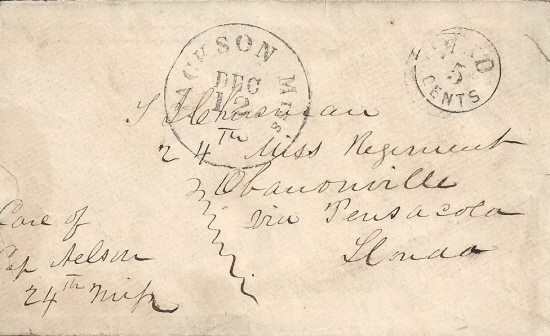 JACKSON Miss.
DEC
12
PAID
5
CENTS
24th Miss Regiment
Obanonville
via Pensacola
Florida
Care of
Cap Nelson
24th Miss